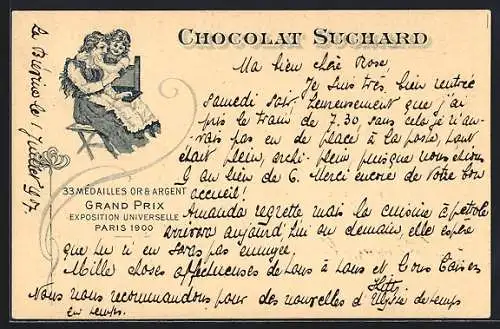 La Brévine le 1 Juillet 07.
CHOCOLAT SUCHARD
33 MÉDAILLES OR & ARGENT
GRAND PRIX
EXPOSITION UNIVERSELLE
PARIS 1900
Ma bien chère Rose
Je suis très bien rentrée
samedi soir heureusement que j'ai
pris le train de 7.30, sans cela je n'au-
rais pas eu de place à la poste, tout
était plein, archi-plein puisque nous étions
9 au lieu de 6. Merci encore de votre bon
accueil!
Amanda regrette mais la cuisine à pétrole
arrivera aujourd'hui ou demain, elle espère
que tu n'en seras pas ennuyée.
Mille choses affectueuses de tous à tous et bons baisers
Nous nous recommandons pour des nouvelles d' de temps
en temps.